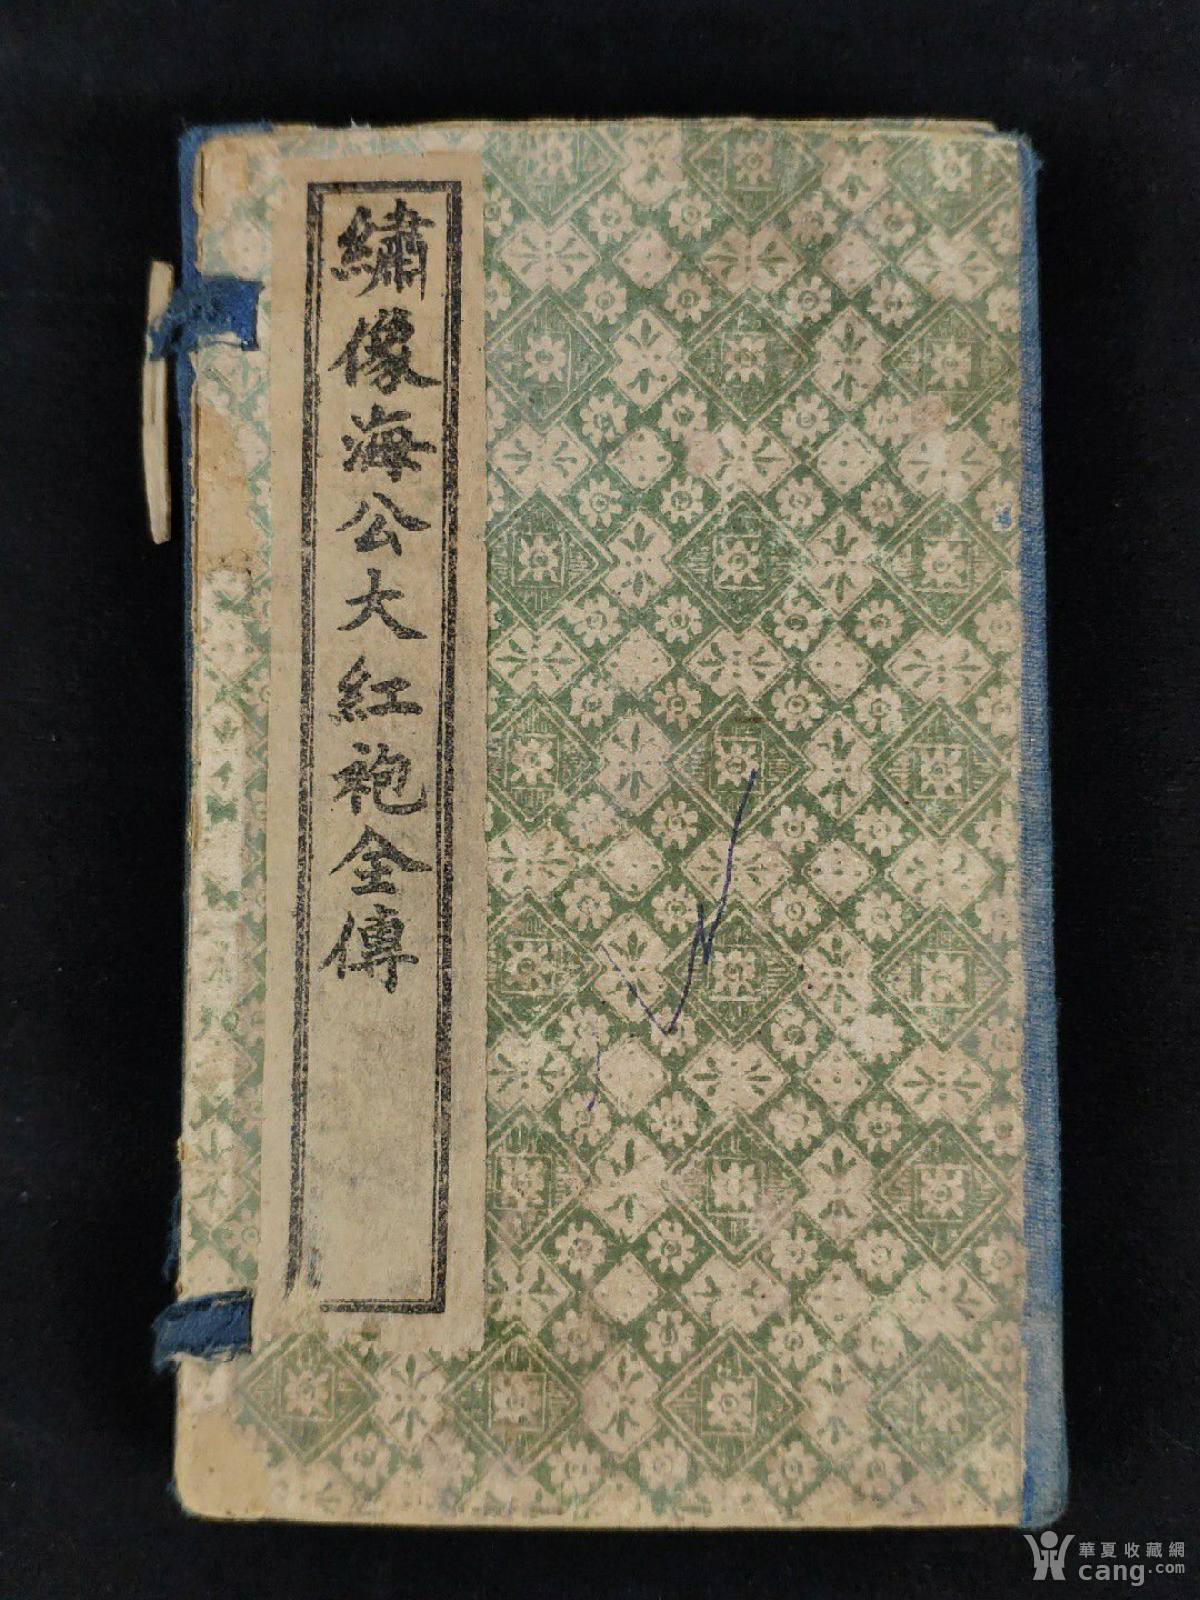 繡像海公大紅袍全傳
華夏收藏網
cang.com